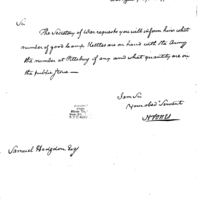 Sir
The Secretary of War requests you will inform him what
number of good Camp Kettles are on hand with the Army
the number at Pittsburg if any and what quantity are on
the public Store —
I am Sir
Your obed Servant
Samuel Hodgdon Esq